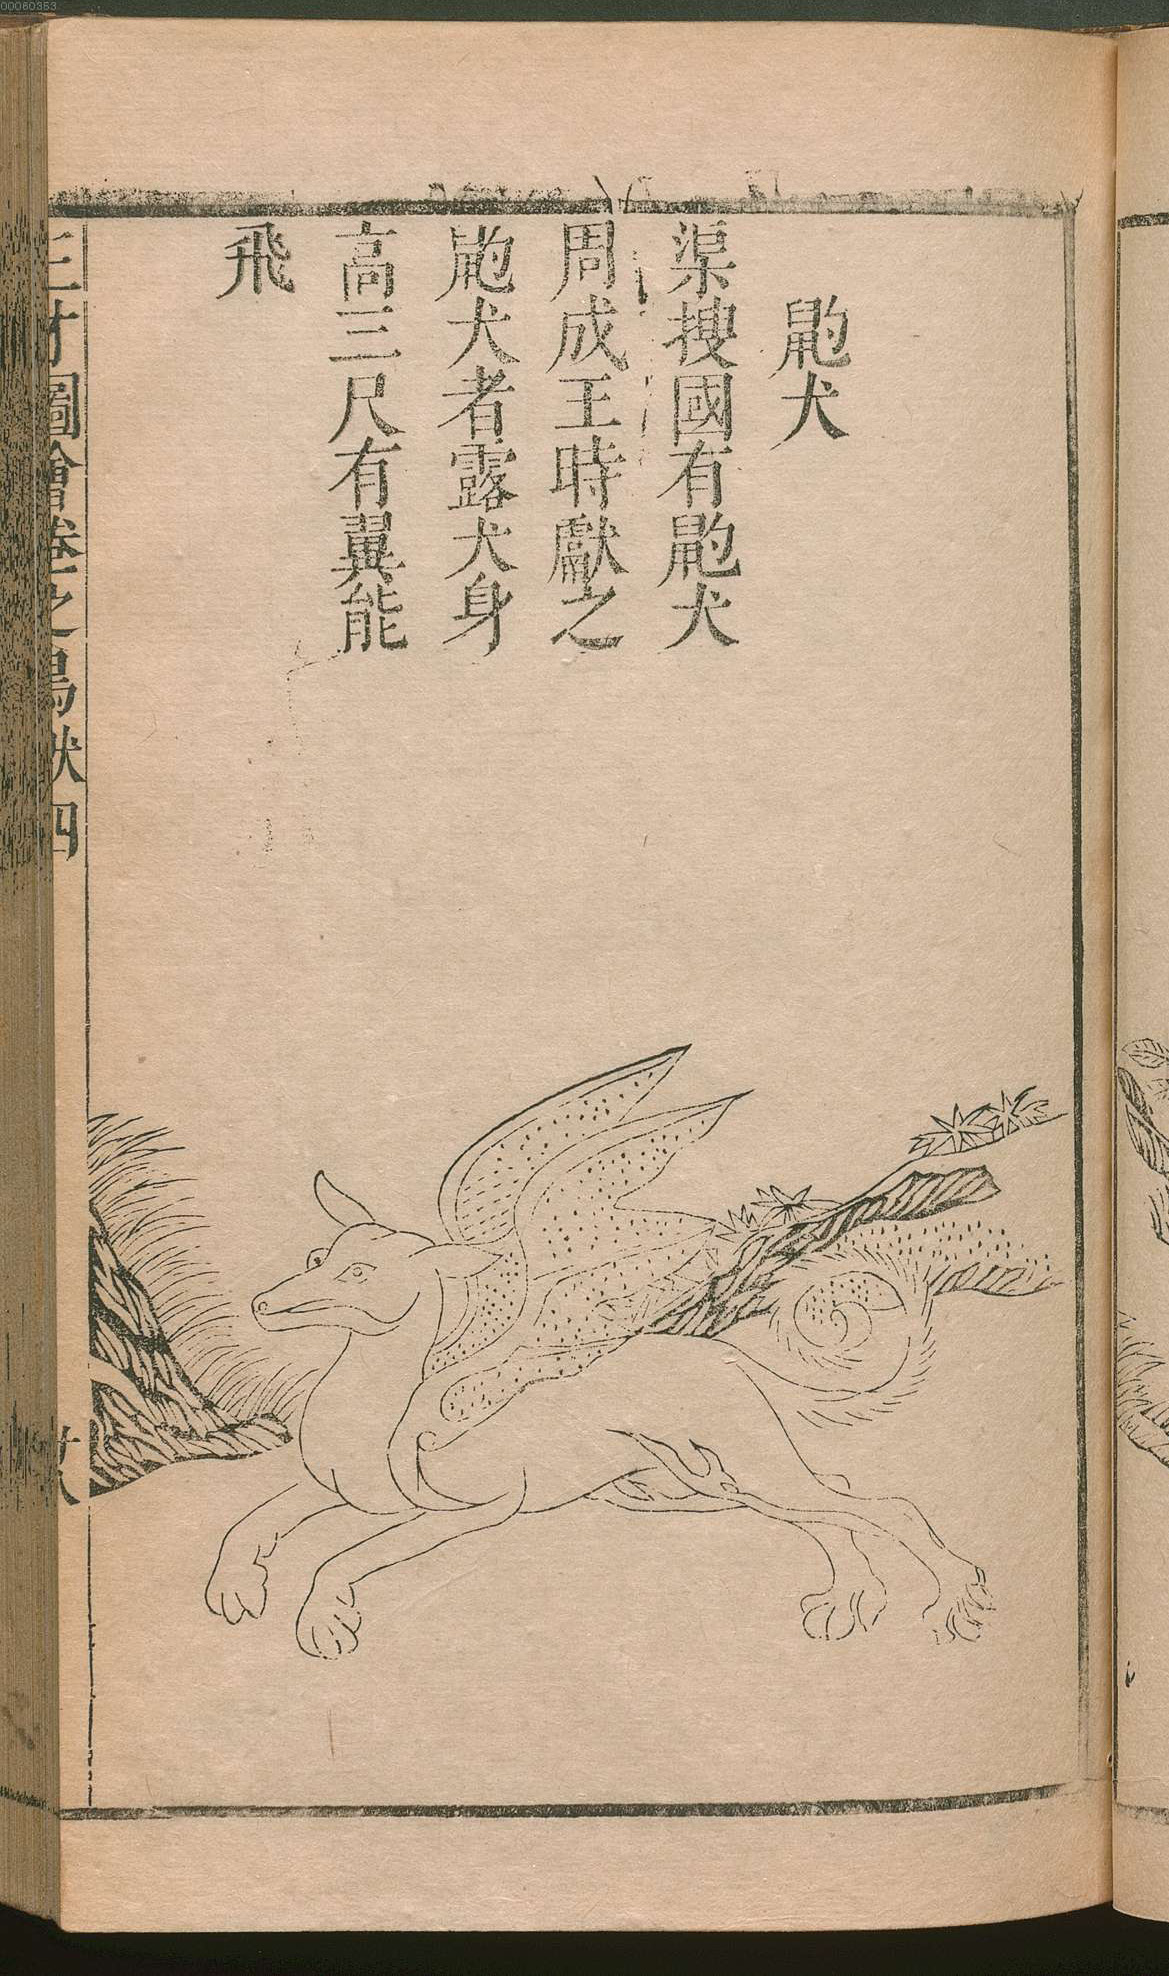 鼩犬
渠搜國有鼩犬
周成王時獻之
鼩犬者露犬身
高三尺有翼能
飛
三才圖會卷之鳥獸四
00060353